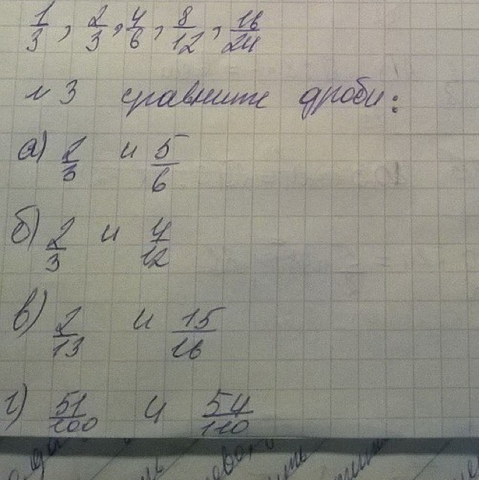 1/3, 2/3, 4/6, 8/12, 16/24
№3 сравните дроби:
а) 2/3 и 5/6
б) 2/3 и 4/12
в) 2/13 и 15/16
г) 51/100 и 54/110